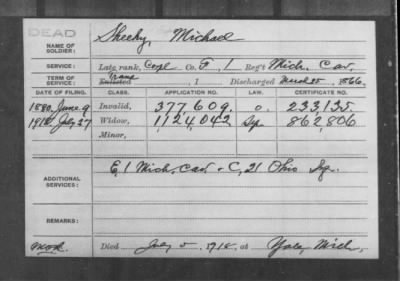 DEAD
NAME OF SOLDIER: Sheehy, Michael
SERVICE: Late rank, Corpl Co. G, 1 Reg't Mich. Cav.
TERM OF SERVICE: Enlisted , 1 Discharged March 25, 1866,
DATE OF FILING. CLASS. APPLICATION NO. LAW. CERTIFICATE NO.
1880, June 9 Invalid, 377609. O. 233,135
1918, July 27 Widow, 1,124,042 862,806
Minor,
ADDITIONAL SERVICES: E, 1 Mich. Cav. + C, 21 Ohio
REMARKS:
Died July 5, 1918, at Yale, Mich.